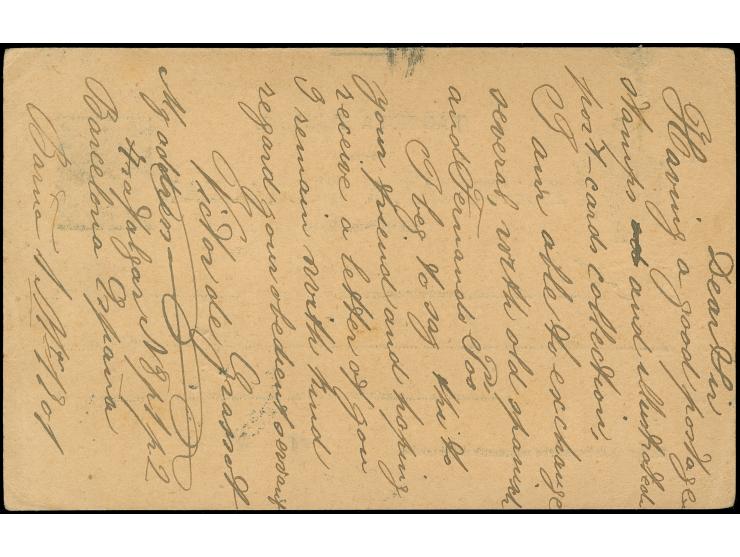 Dear Sir
Having a good postage
stamps and illustrated
post-cards collection,
I am able to exchange
several, with old spanish
and Fernando Poo
I beg to say this to
your friend and hoping
receive a letter of you
I remain with kind
regard your obedient servant
Victor de Grassot
My address
Trafalgar Nº 8 pl 1ª 2
Barcelona España
Barna 1 1901